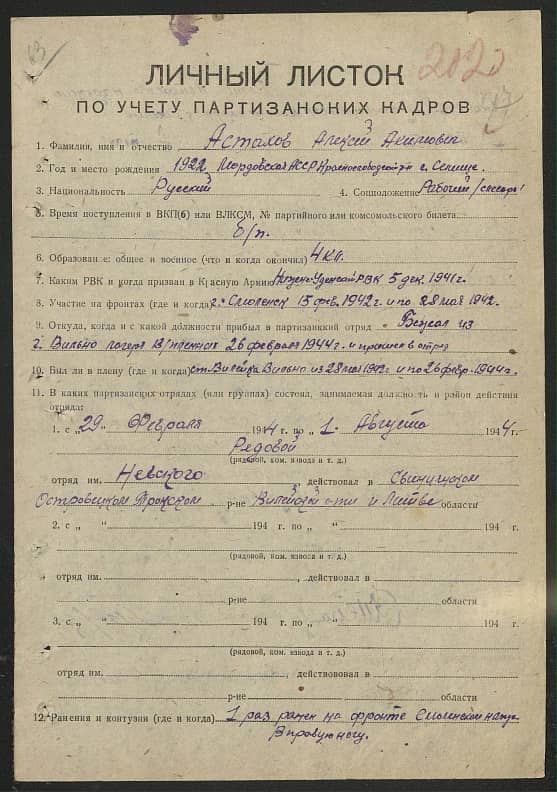 ЛИЧНЫЙ ЛИСТОК
2020
ПО УЧЕТУ ПАРТИЗАНСКИХ КАДРОВ
1. Фамилия, имя и отчество Асталов Алексей Акимович
2. Год и место рождения 1922 Мордовская АССР Краснослободский
3. Национальность Русский 4. Соцположение Рабочий /слесарь/
5. Время поступления в ВКП(б) или ВЛКСМ, № партийного или комсомольского билета
б/п.
6. Образование: общее и военное (что и когда окончил) 4 кл.
7. Каким РВК и когда призван в Красную Армию РВК 5 дек. 1941 г.
8. Участие на фронтах (где и когда) г. Смоленск 15 фев. 1942 г. и по 28 мая 1942.
9. Откуда, когда и с какой должности прибыл в партизанкий отряд Бежал из
г. Вильно лагеря в/пленных 26 февраля 1944 г. и пришел в отряд
10. Был ли в плену (где и когда) ст. Вилейка Вильно из 28 мая 1942 г. и по 26 февр. 1944 г.
11. В каких партизанских отрядах (или группах) состоял, занимаемая должность и район действия
отряда:
1. с „29“ Февраля 1944 г. по „1“ Августа 1944 г.
Рядовой
(рядовой, ком. взвода и т. д.)
отряд им. Невского действовал в Свенцянском
Островецком Трокском р-не Вилейской о-ти и Литве области
2. с „ “ 194 г. по „ “ 194 г.
(рядовой, ком. взвода и т. д.)
отряд им. , действовал в
р-не области
3. с „ “ 194 г. по „ “ 194 г.
(рядовой, ком. взвода и т. д.)
отряд им. , действовал в
р-не области
12. Ранения и контузии (где и когда) 1 раз ранен на фронте Смоленском напр.
В правую ногу.